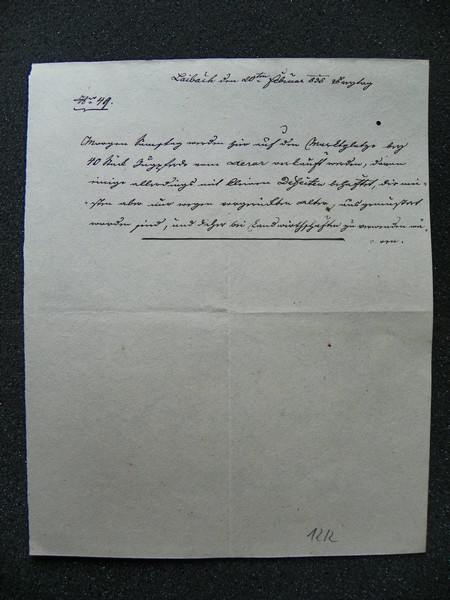 Laibach den 20ten Februar 836
No 49.
Morgen Samstag werden hier auf dem Marktplatze bey
40 Stück Zugpferde vom Aerar verkauft werden, davon
einige allerdings mit kleinen Defeiten behaftet, die mei-
sten aber nur wegen vorgerückten Alter, ausgemustert
worden sind, und daher bei Landwirthschaften zu verwenden wä-
ren.
1212